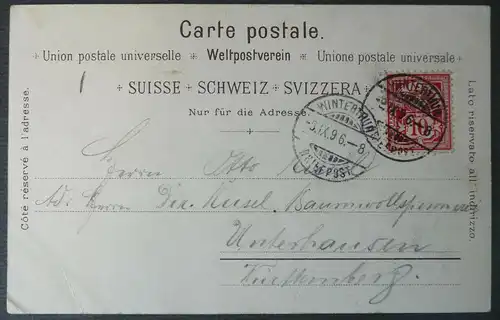 Carte postale.
Union postale universelle Weltpostverein Unione postale universale
SUISSE SCHWEIZ SVIZZERA
Nur für die Adresse.
Côté réservé à l'adresse.
Lato riservato all'indirizzo.
WINTERTHUR
-9.IX.96.-8
BRIEFPOST
10
Herrn Otto
Adr. Herrn Baumwollspinnerei
Unterhausen
Württemberg.